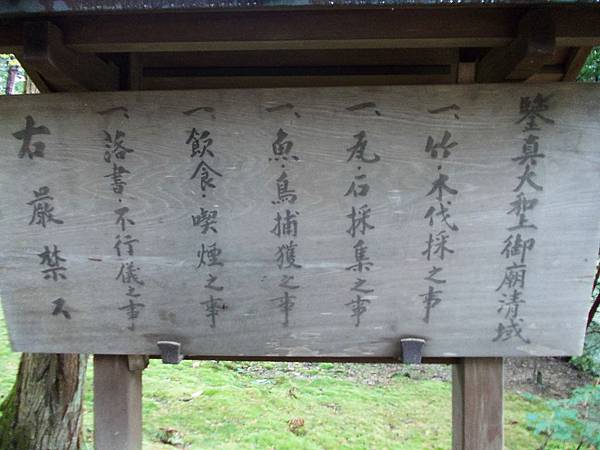 鑒真大和上御廟清域
一、竹木伐採之事
一、瓦・石採集之事
一、魚・鳥捕獲之事
一、飲食・喫煙之事
一、落書・不行儀之事
右厳禁ス